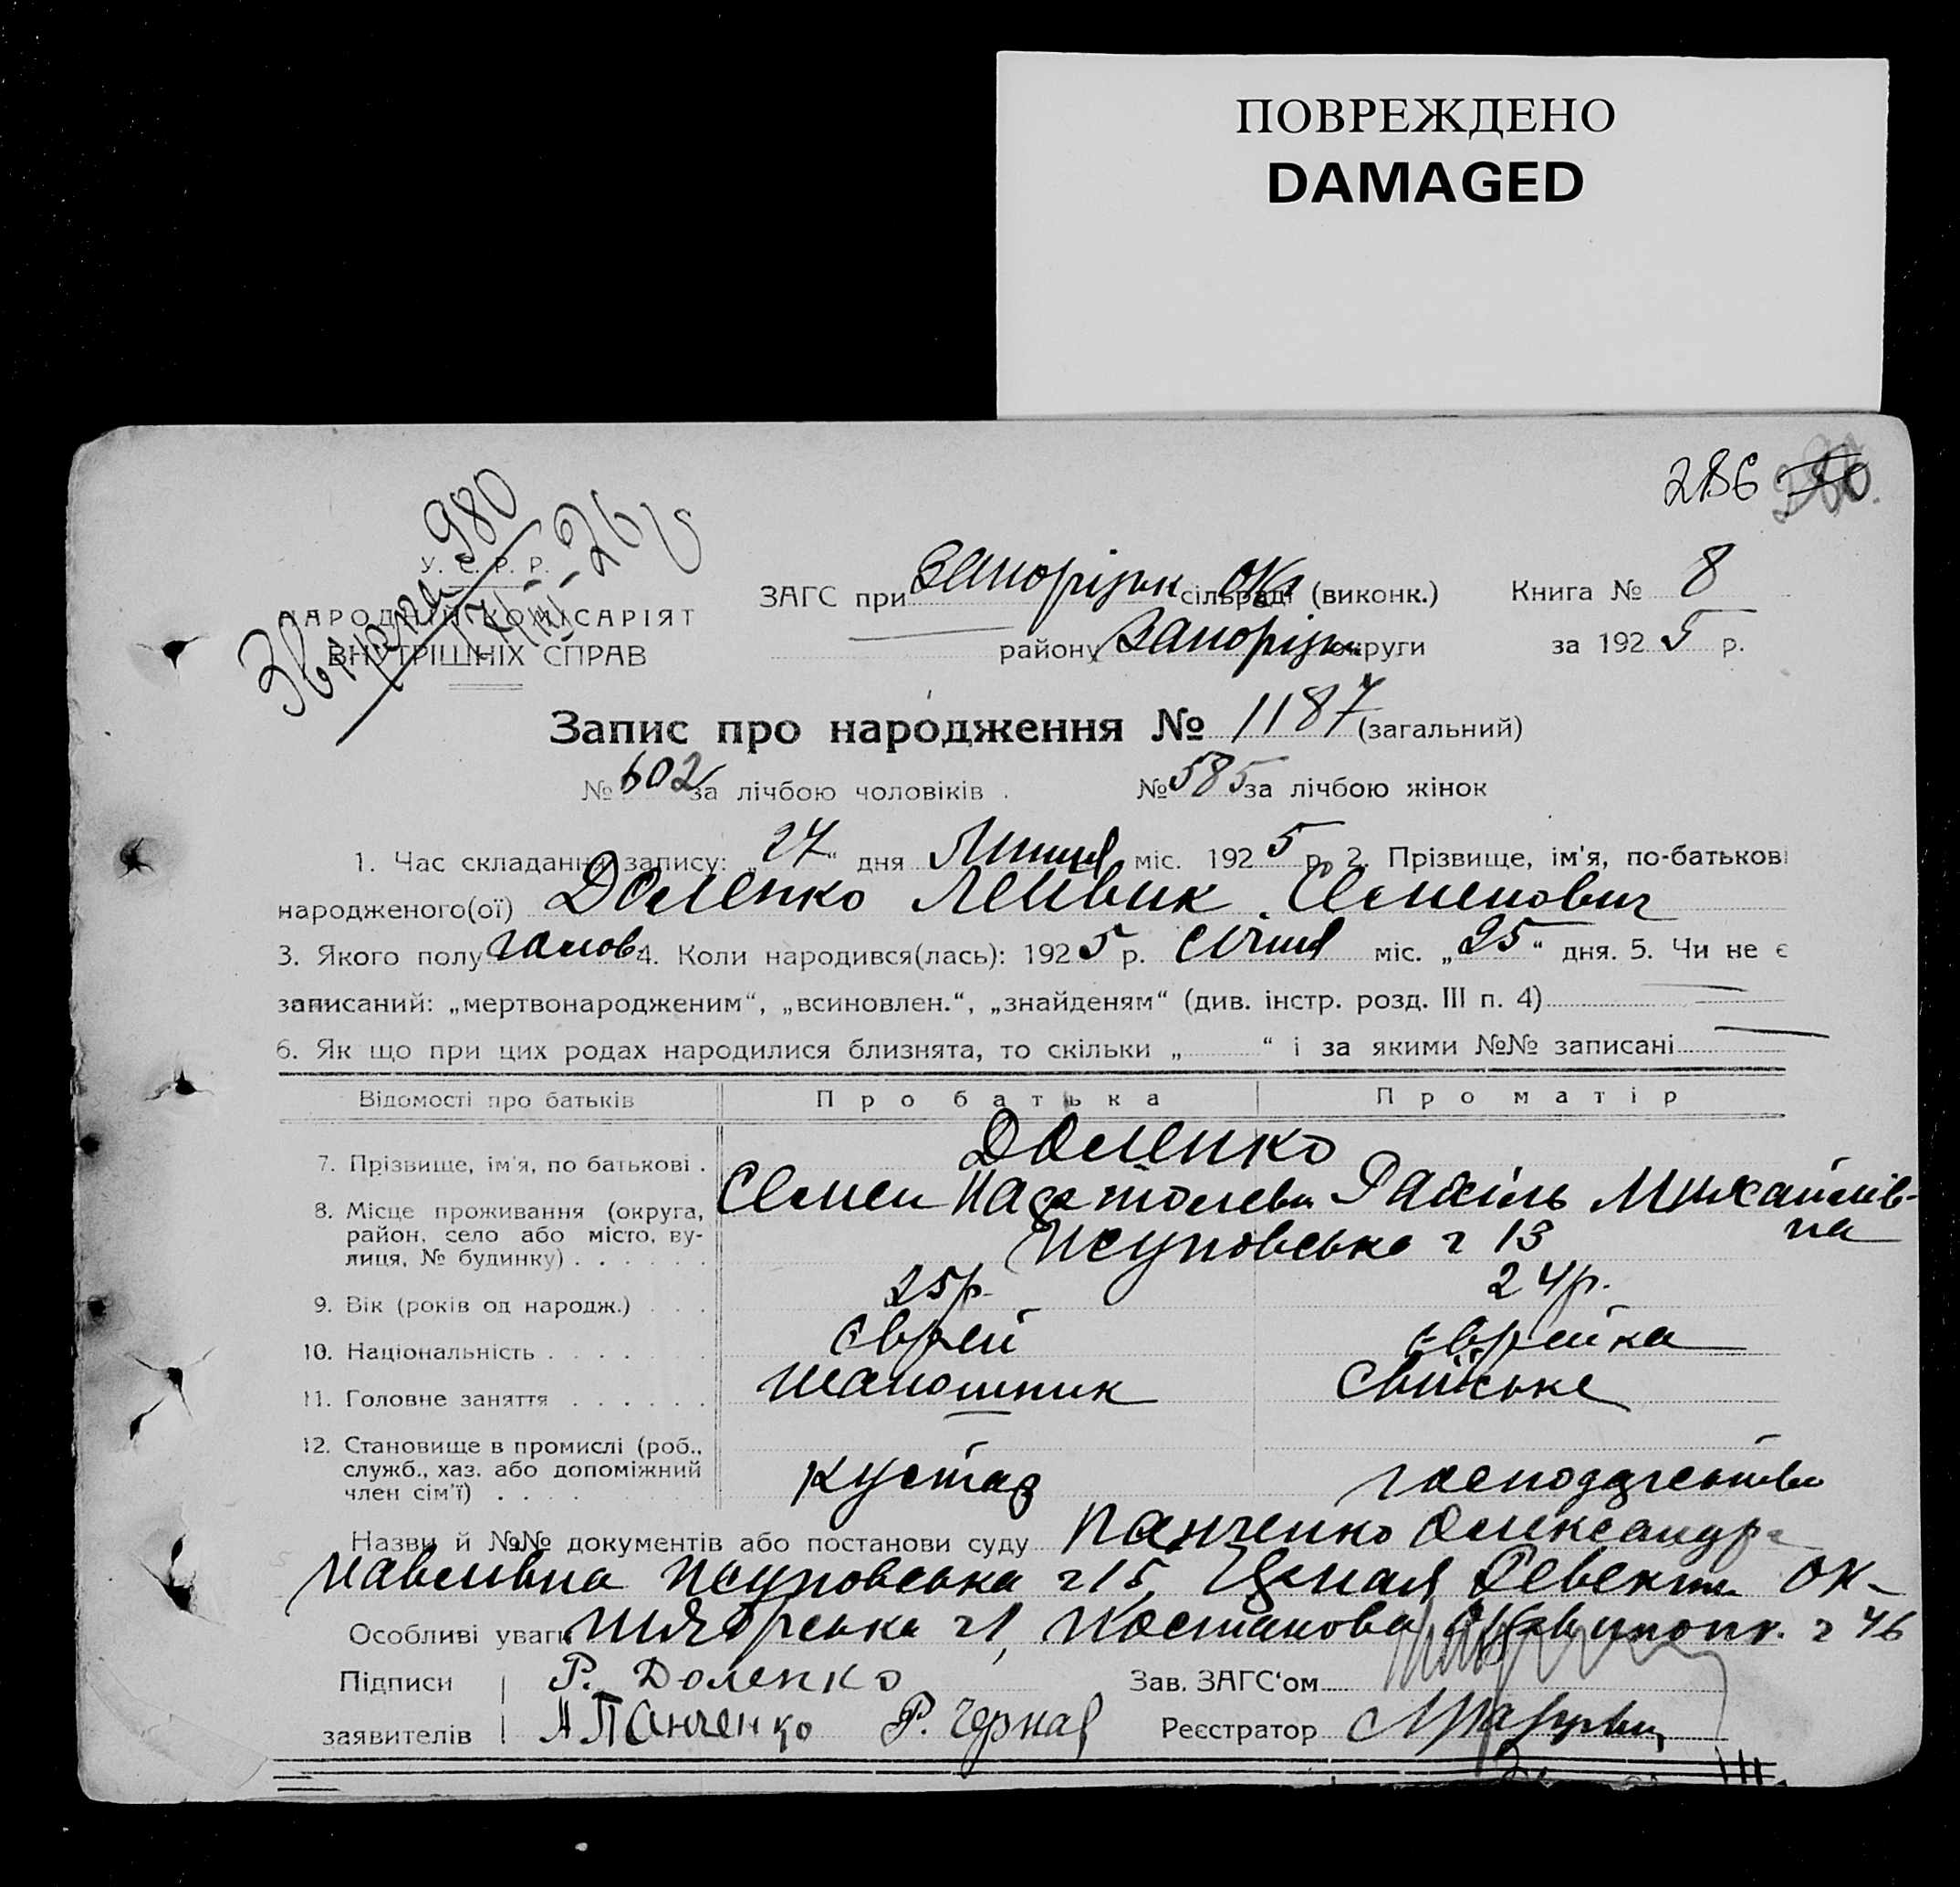 ПОВРЕЖДЕНО
DAMAGED
286
980
У. С. Р. Р.
НАРОДНІЙ КОМІСАРІЯТ
ВНУТРІШНІХ СПРАВ
ЗАГС при Запорізьк сільраді (виконк.) Книга № 8
району Запорізьк округи за 1925 р.
Запис про народження № 1187 (загальний)
№ 602 за лічбою чоловіків . № 585 за лічбою жінок
1. Час складання запису: „27“ дня Липня міс. 1925 р. 2. Прізвище, ім'я, по-батькові
народженого(ої) Доленко Семенович
3. Якого полу чолов. 4. Коли народився(лась): 1925 р. січня міс. „25“ дня. 5. Чи не є
записаний: „мертвонародженим“, „всиновлен.“, „знайденям“ (див. інстр. розд. III п. 4)
6. Як що при цих родах народилися близнята, то скільки „ “ і за якими №№ записані
Відомості про батьків Про батька Про матір
7. Прізвище, ім'я, по батькові . Доленко
Семен Рахіль Михайлів-
на
8. Місце проживання (округа,
район, село або місто, ву-
лиця, № будинку) . . . . . . ч 13
9. Вік (років од народж.) . . . 25р. 24р.
10. Національність . . . . . . . Єврей Єврейка
11. Головне заняття . . . . . . Шапошник Свійське
12. Становище в промислі (роб.,
служб., хаз. або допоміжний
член сім'ї) . . . . Кустар господарство
Назви й №№ документів або постанови суду Панченко Олександра
Павлівна ч 15,
Особливі уваги ч 46
Підписи Р. Доленко Зав. ЗАГС‘ом
заявителів А Панченко Р. Черная Реєстратор